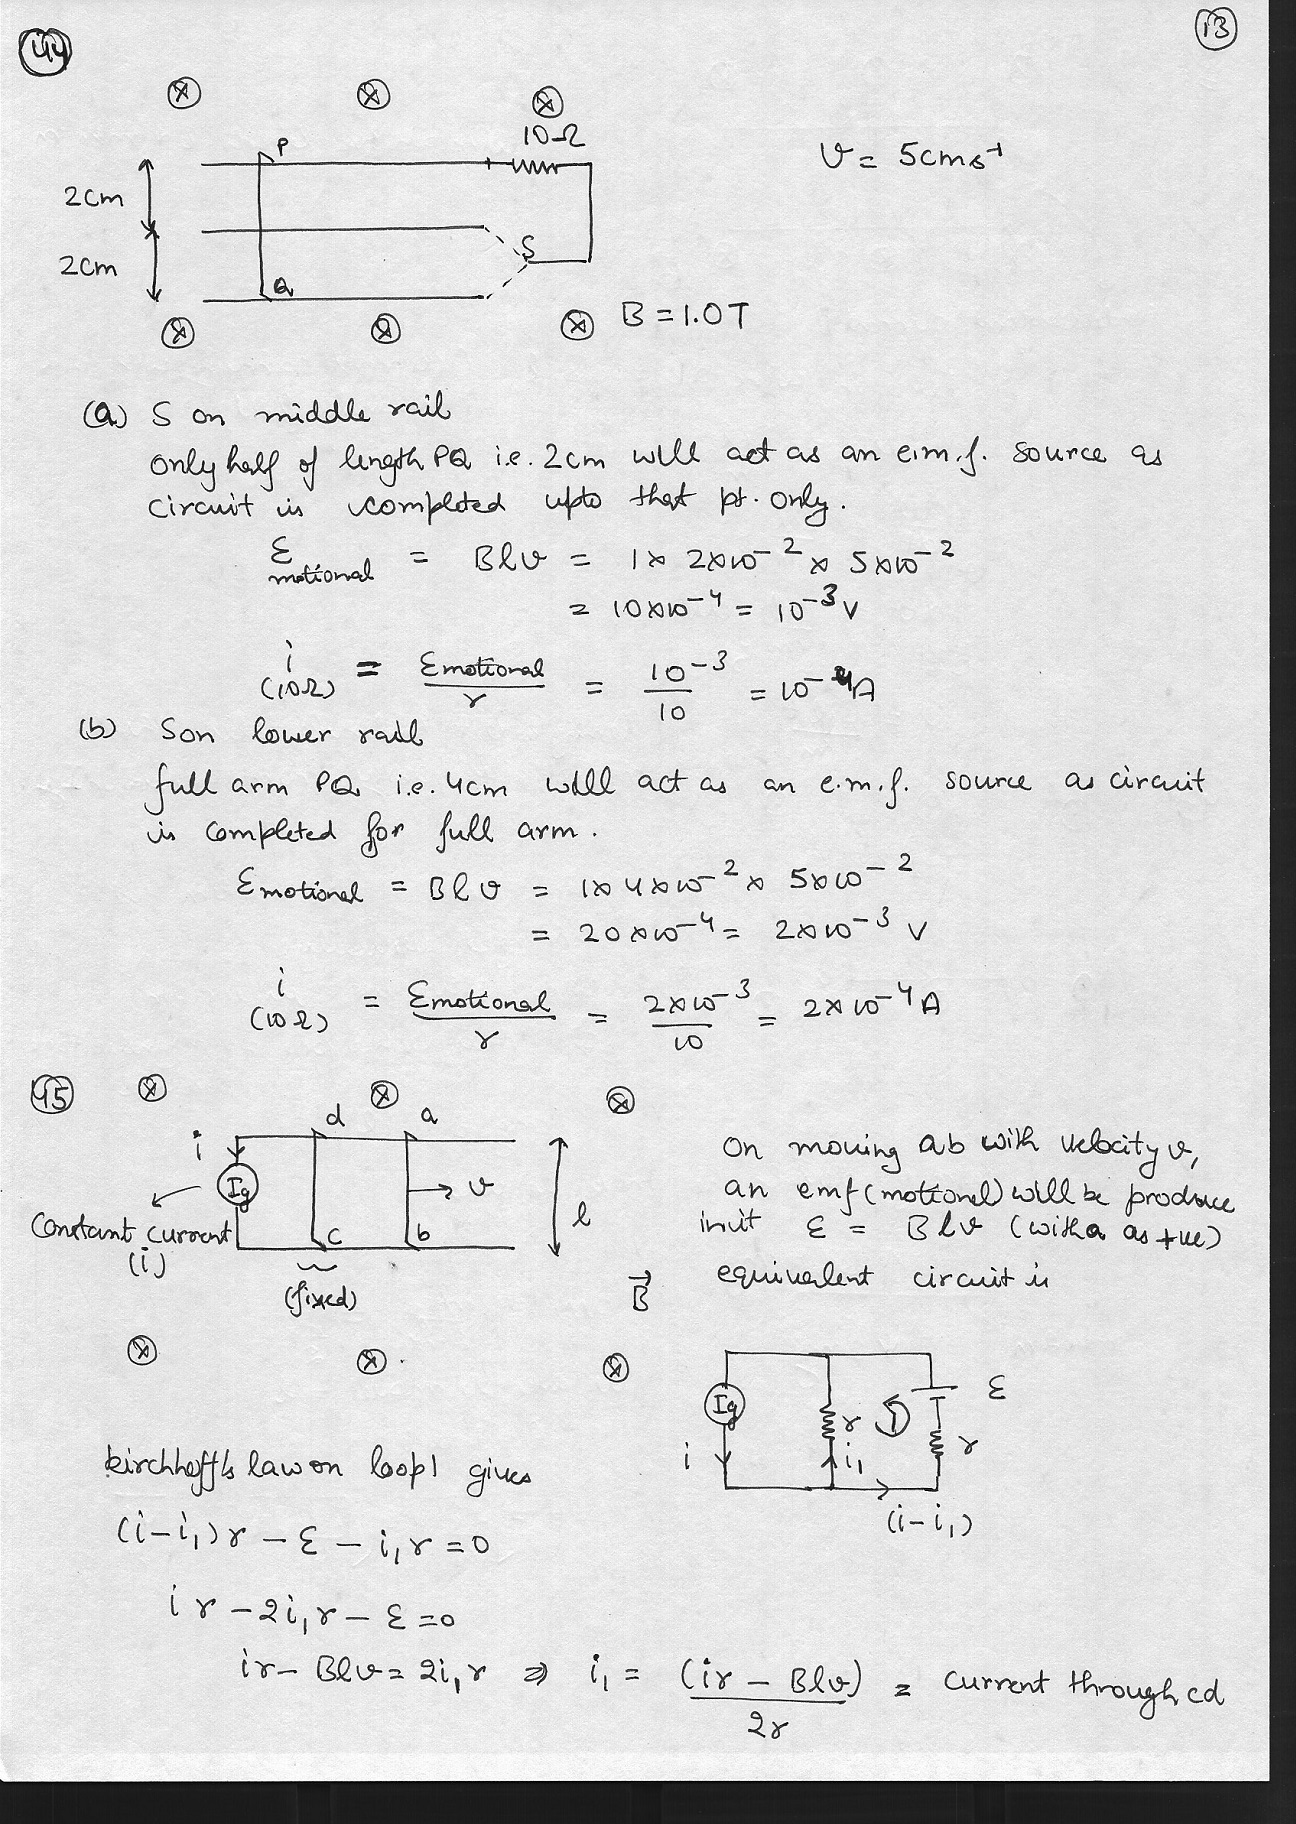 44
13
10Ω
P
2cm
2cm
S
Q
v = 5cms⁻¹
B = 1.0T
(a) S on middle rail
only half of length PQ i.e. 2cm will act as an e.m.f. source as
circuit is completed upto that pt. only.
ε motional = Blv = 1 × 2×10⁻² × 5×10⁻²
= 10×10⁻⁴ = 10⁻³ V
i (10Ω) = εmotional / r = 10⁻³ / 10 = 10⁻⁴A
(b) S on lower rail
full arm PQ i.e. 4cm will act as an e.m.f. source as circuit
is completed for full arm.
εmotional = Blv = 1× 4×10⁻² × 5×10⁻²
= 20×10⁻⁴ = 2×10⁻³ V
i (10Ω) = εmotional / r = 2×10⁻³ / 10 = 2×10⁻⁴ A
45
d
a
i
Ig
v
l
Constant current
(i)
c
b
(fixed)
B⃗
On moving ab with velocity v,
an emf (motional) will be produce
in it ε = Blv (with a as +ve)
equivalent circuit is
Ig
r
1
ε
r
i
i₁
(i-i₁)
kirchhoff's law on loop 1 gives
(i-i₁)r - ε - i₁r = 0
ir - 2i₁r - ε = 0
ir - Blv = 2i₁r ⇒ i₁ = (ir - Blv) / 2r = current through cd